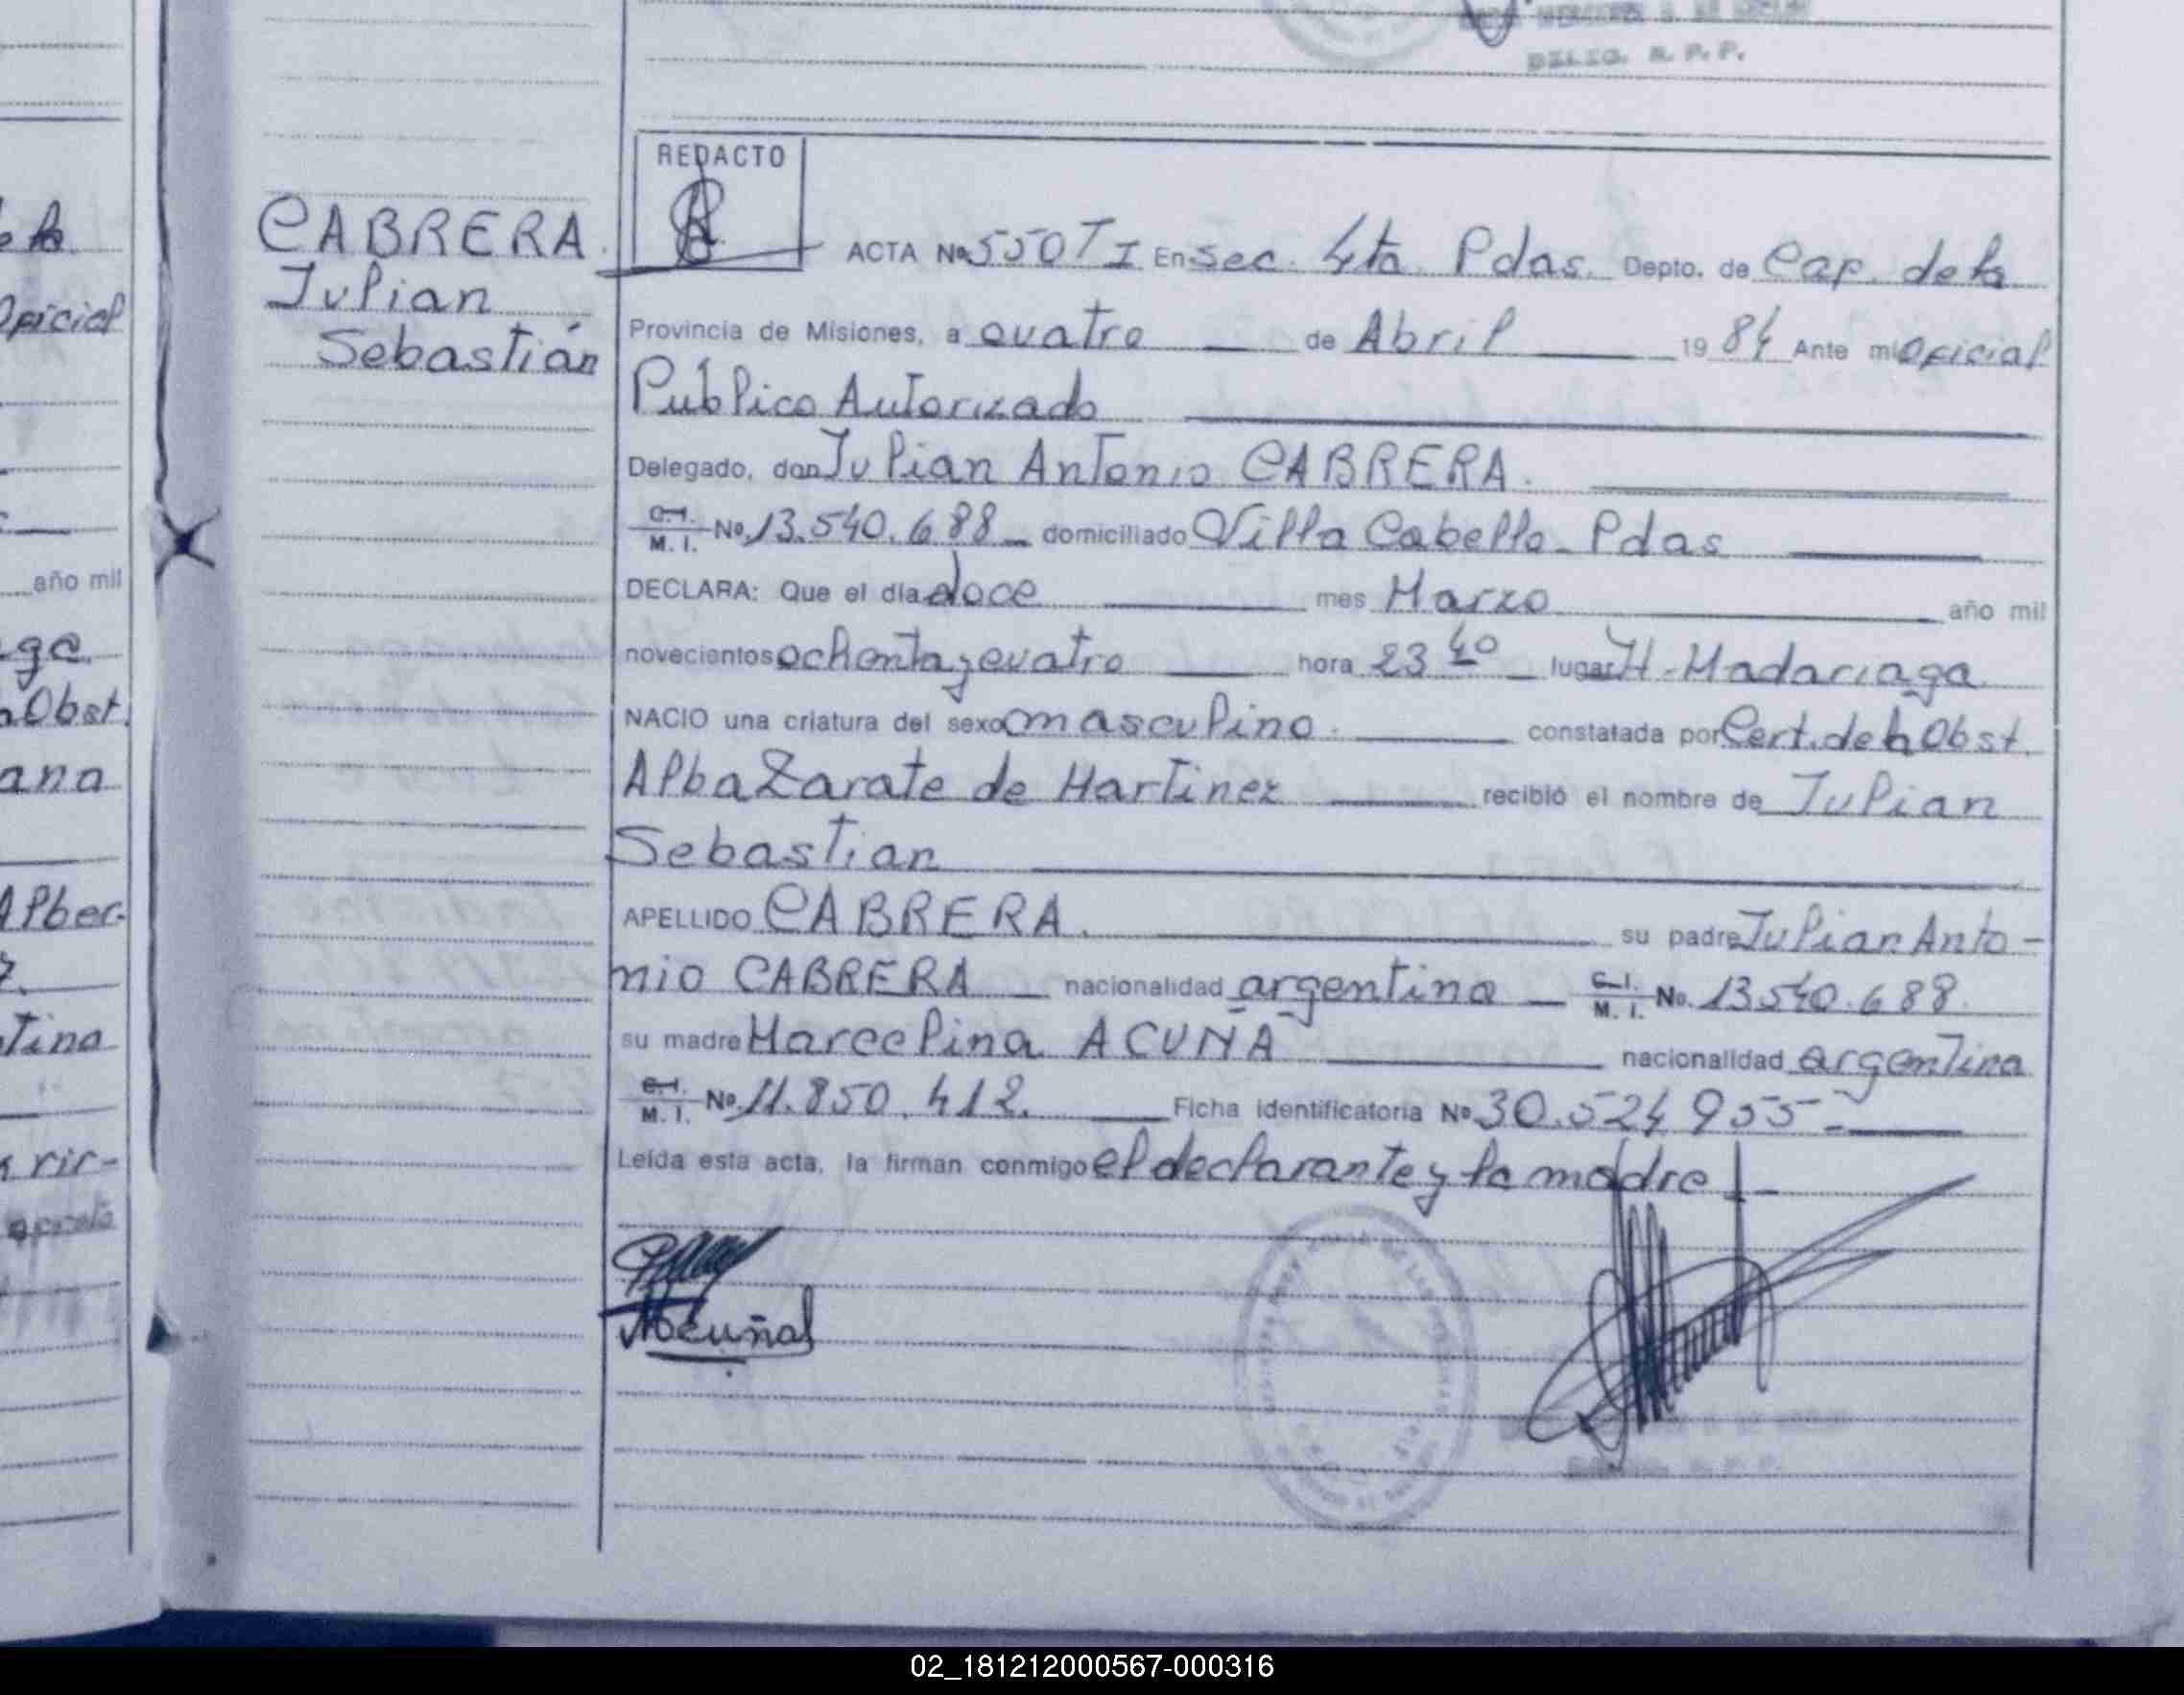 DELEG. R. P. P.
CABRERA.
Julian
Sebastián
REDACTO
ACTA No 550 T I En Sec. 4ta Pdas. Depto. de Cap. de la
Provincia de Misiones, a cuatro de Abril 1984 Ante mi Oficial
Público Autorizado
Delegado, don Julian Antonio CABRERA.
C.I. M. I. No. 13.540.688 domiciliado Villa Cabello - Pdas
DECLARA: Que el día doce mes Marzo año mil
novecientos ochenta y cuatro hora 23 40 lugar H. Madariaga
NACIO una criatura del sexo masculino. constatada por Cert. de la Obst.
Alba Zarate de Martinez recibió el nombre de Julian
Sebastian
APELLIDO CABRERA. su padre Julian Anto-
nio CABRERA nacionalidad argentina C.I. M. I. No. 13.540.688.
su madre Marcelina ACUÑA nacionalidad argentina
C.I. M. I. No. 11.850.412. Ficha identificatoria No 30.524.955-
Leída esta acta, la firman conmigo el declarante y la madre
Acuña
oficial
año mil
ga
Obst.
ana
Alber-
tina
rir-
02_181212000567-000316